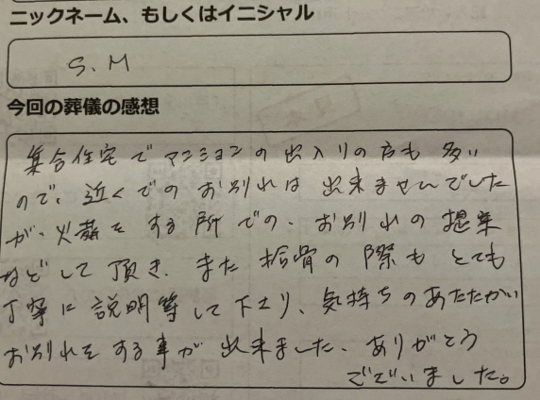 ニックネーム、もしくはイニシャル
S.M
今回の葬儀の感想
集合住宅でマンションの出入りの方も多い
ので、近くでのお別れは出来ませんでした
が、火葬をする所での、お別れの提案
などして頂き、また拾骨の際も とても
丁寧に説明等して下さり、気持ちのあたたかい
お別れをする事が出来ました、ありがとう
ございました。